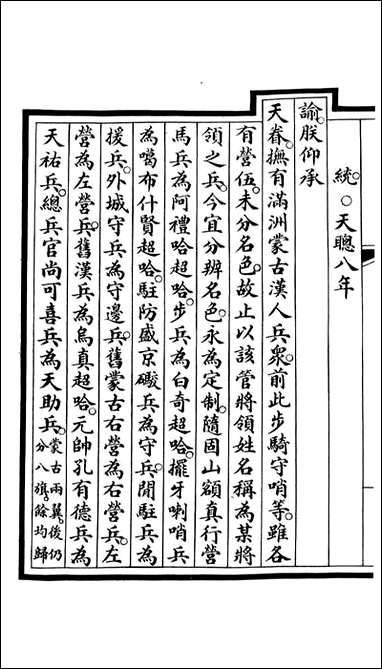 統○天聰八年
諭朕仰承
天眷撫有滿洲蒙古漢人兵衆前此步騎守哨等雖各
有營伍未分名色故止以該管將領姓名稱為某將
領之兵今宜分辨名色永為定制隨固山額真行營
馬兵為阿禮哈超哈步兵為白奇超哈擺牙喇哨兵
為噶布什賢超哈駐防盛京礮兵為守兵閒駐兵為
援兵外城守兵為守邊兵舊蒙古右營為右營兵左
營為左營兵舊漢兵為烏真超哈元帥孔有德兵為
天祐兵總兵官尚可喜兵為天助兵蒙古兩翼後仍
分八旗餘均歸